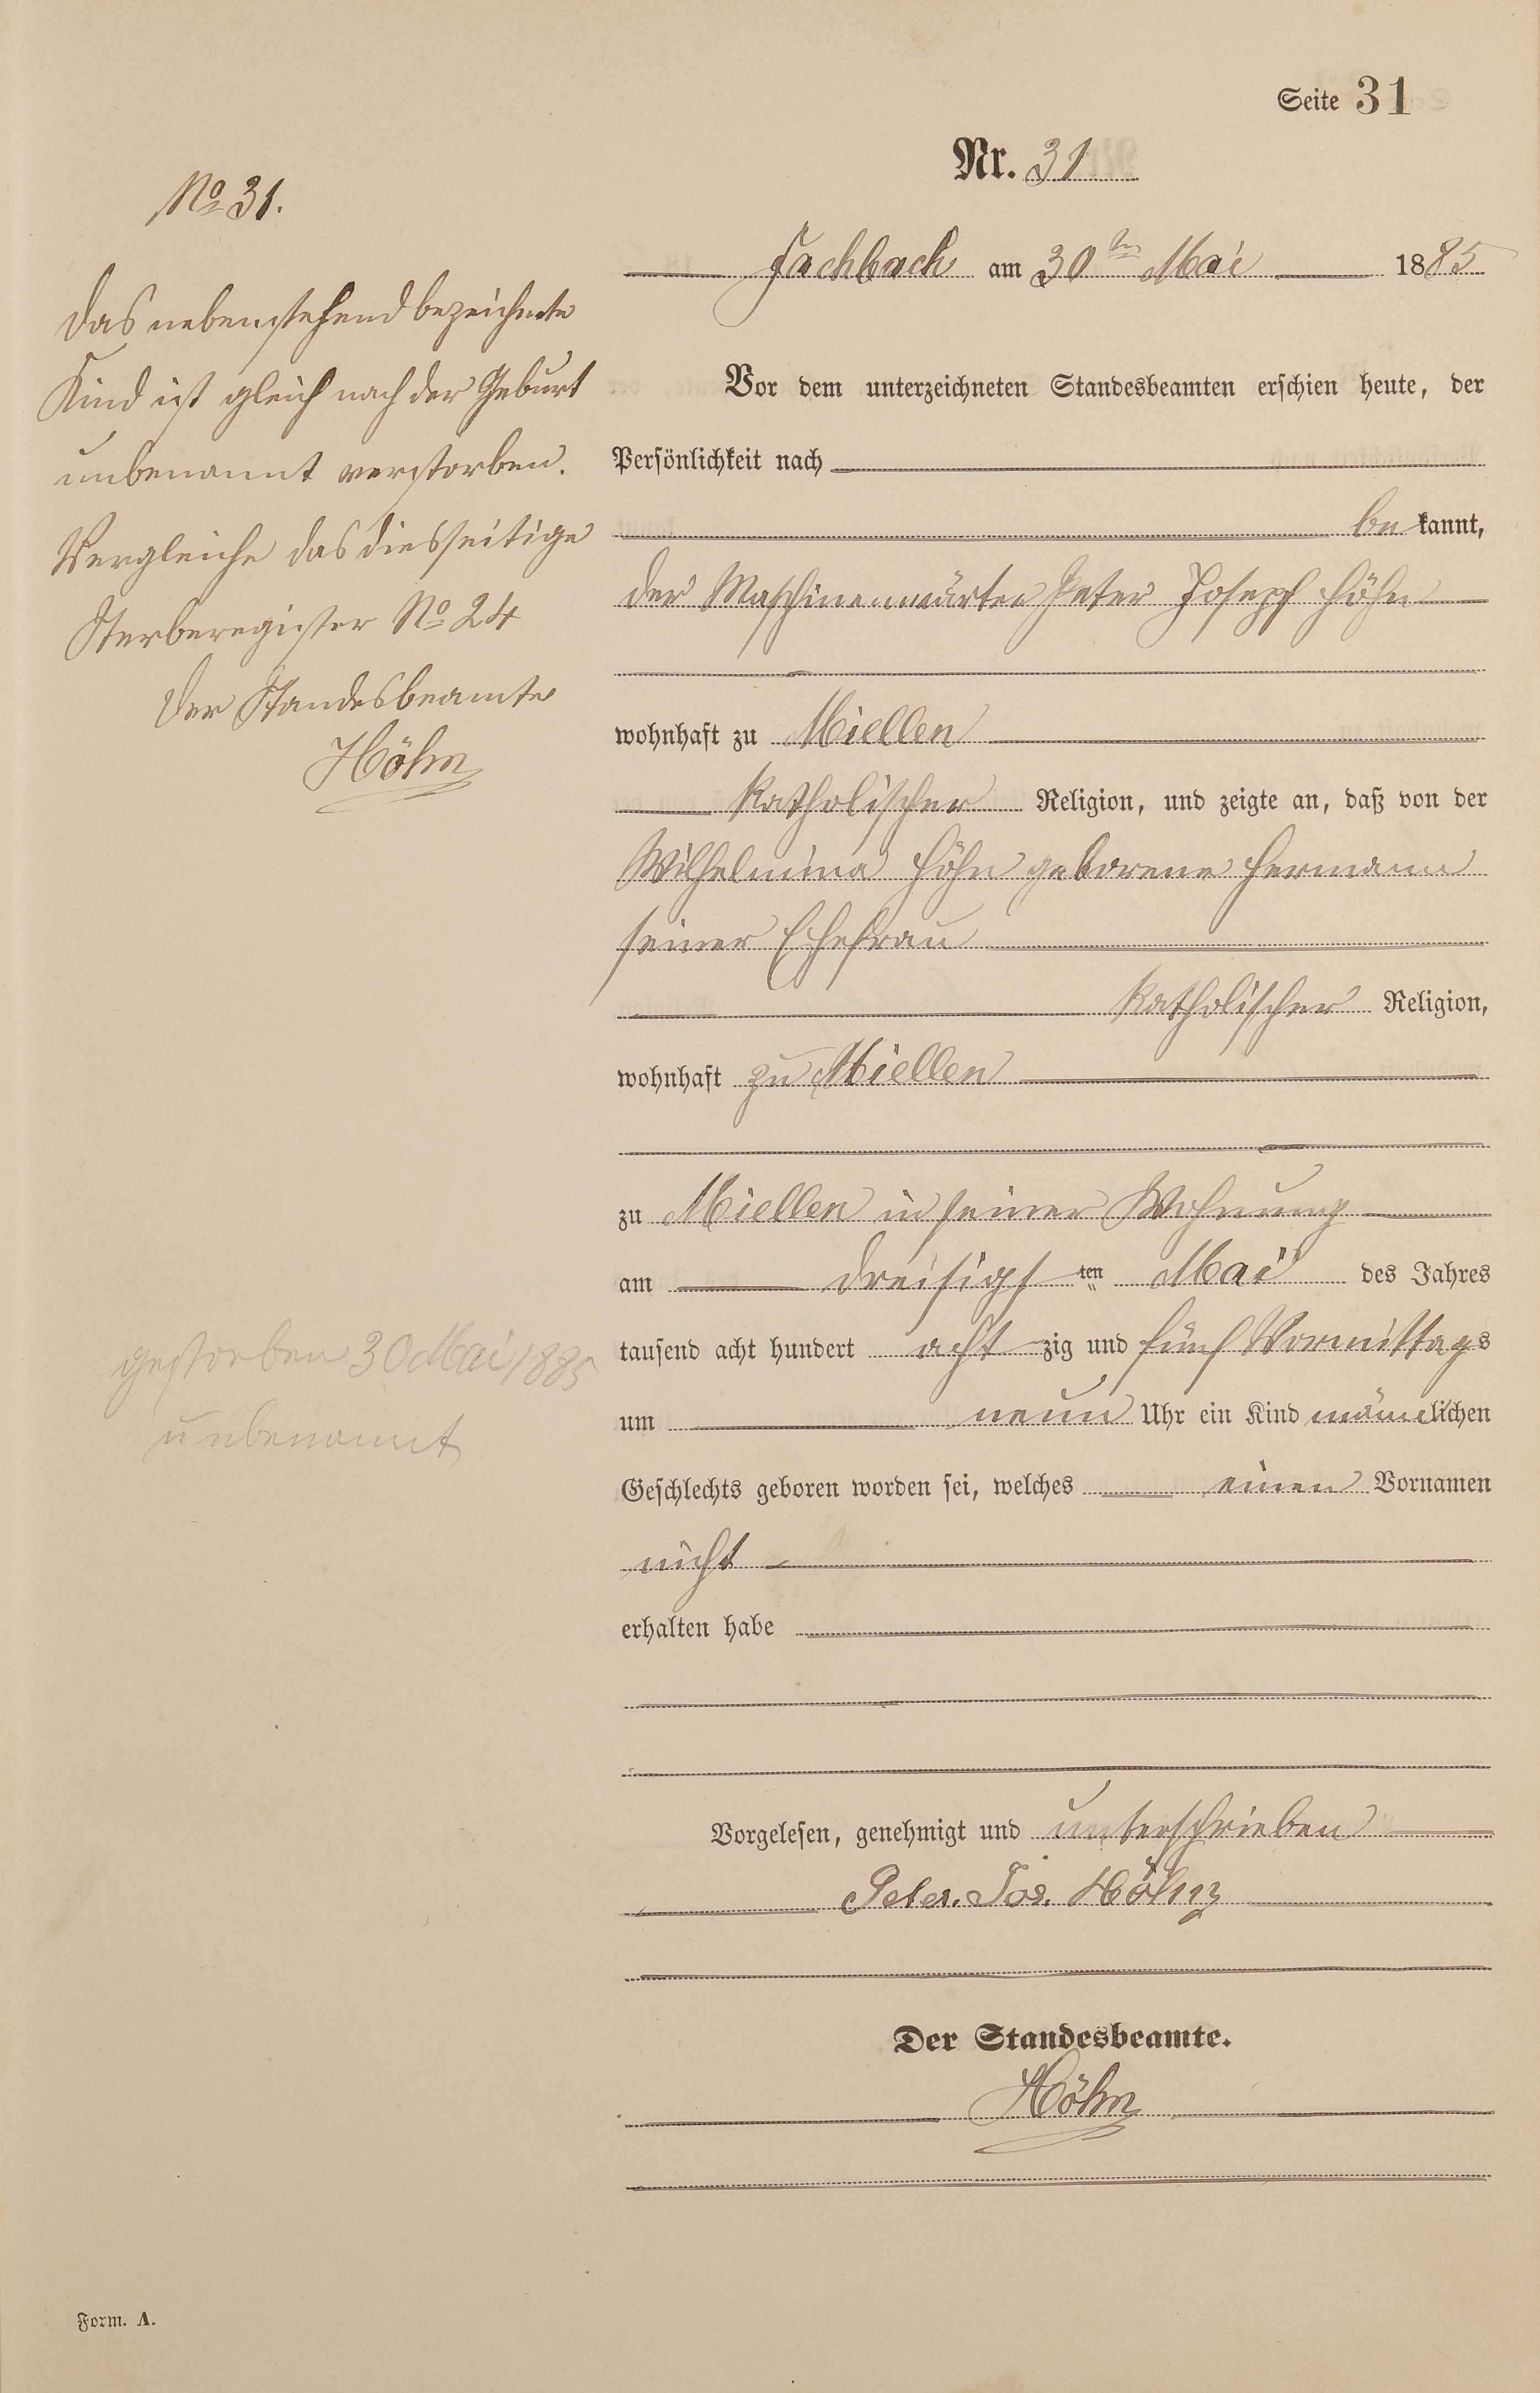 Seite 31
Nr. 31
Fachbach am 30ten Mai 1885
Vor dem unterzeichneten Standesbeamten erschien heute, der
Persönlichkeit nach
be kannt,
der Maschinenwärter Peter Joseph Höhn
wohnhaft zu Miellen
katholischer Religion, und zeigte an, daß von der
Wilhelmina Höhn geborene Hermann
seiner Ehefrau
katholischer Religion,
wohnhaft zu Miellen
zu Miellen in seiner Wohnung
am dreisigs ten Mai des Jahres
tausend acht hundert acht zig und fünf Vormittags
um neun Uhr ein Kind männlichen
Geschlechts geboren worden sei, welches einen Vornamen
nicht
erhalten habe
Vorgelesen, genehmigt und unterschrieben
Peter. Jos. Höhn
Der Standesbeamte.
Höhn
No 31.
Das nebenstehend bezeichnete
Kind ist gleich nach der Geburt
unbenannt verstorben.
Vergleiche das diesseitige
Sterberegister No 24
Der Standesbeamte
Höhn
gestorben 30 Mai 1885
unbenannt
Form. A.